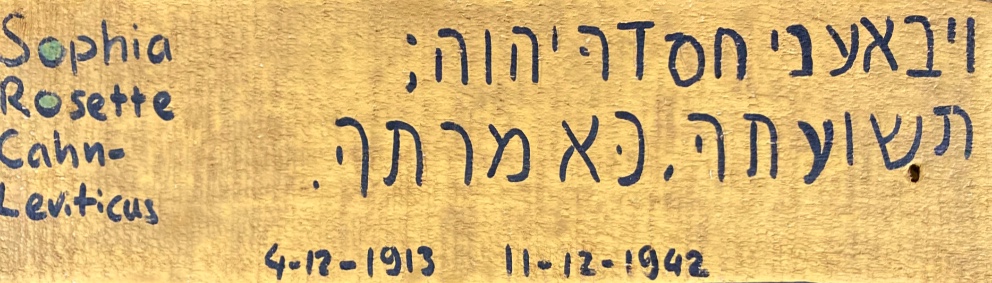 Sophia
Rosette
Cahn-
Leviticus
ויבאעני חסדך יהוה;
תשועתך. כאמרתך.
4-12-1913 11-12-1942